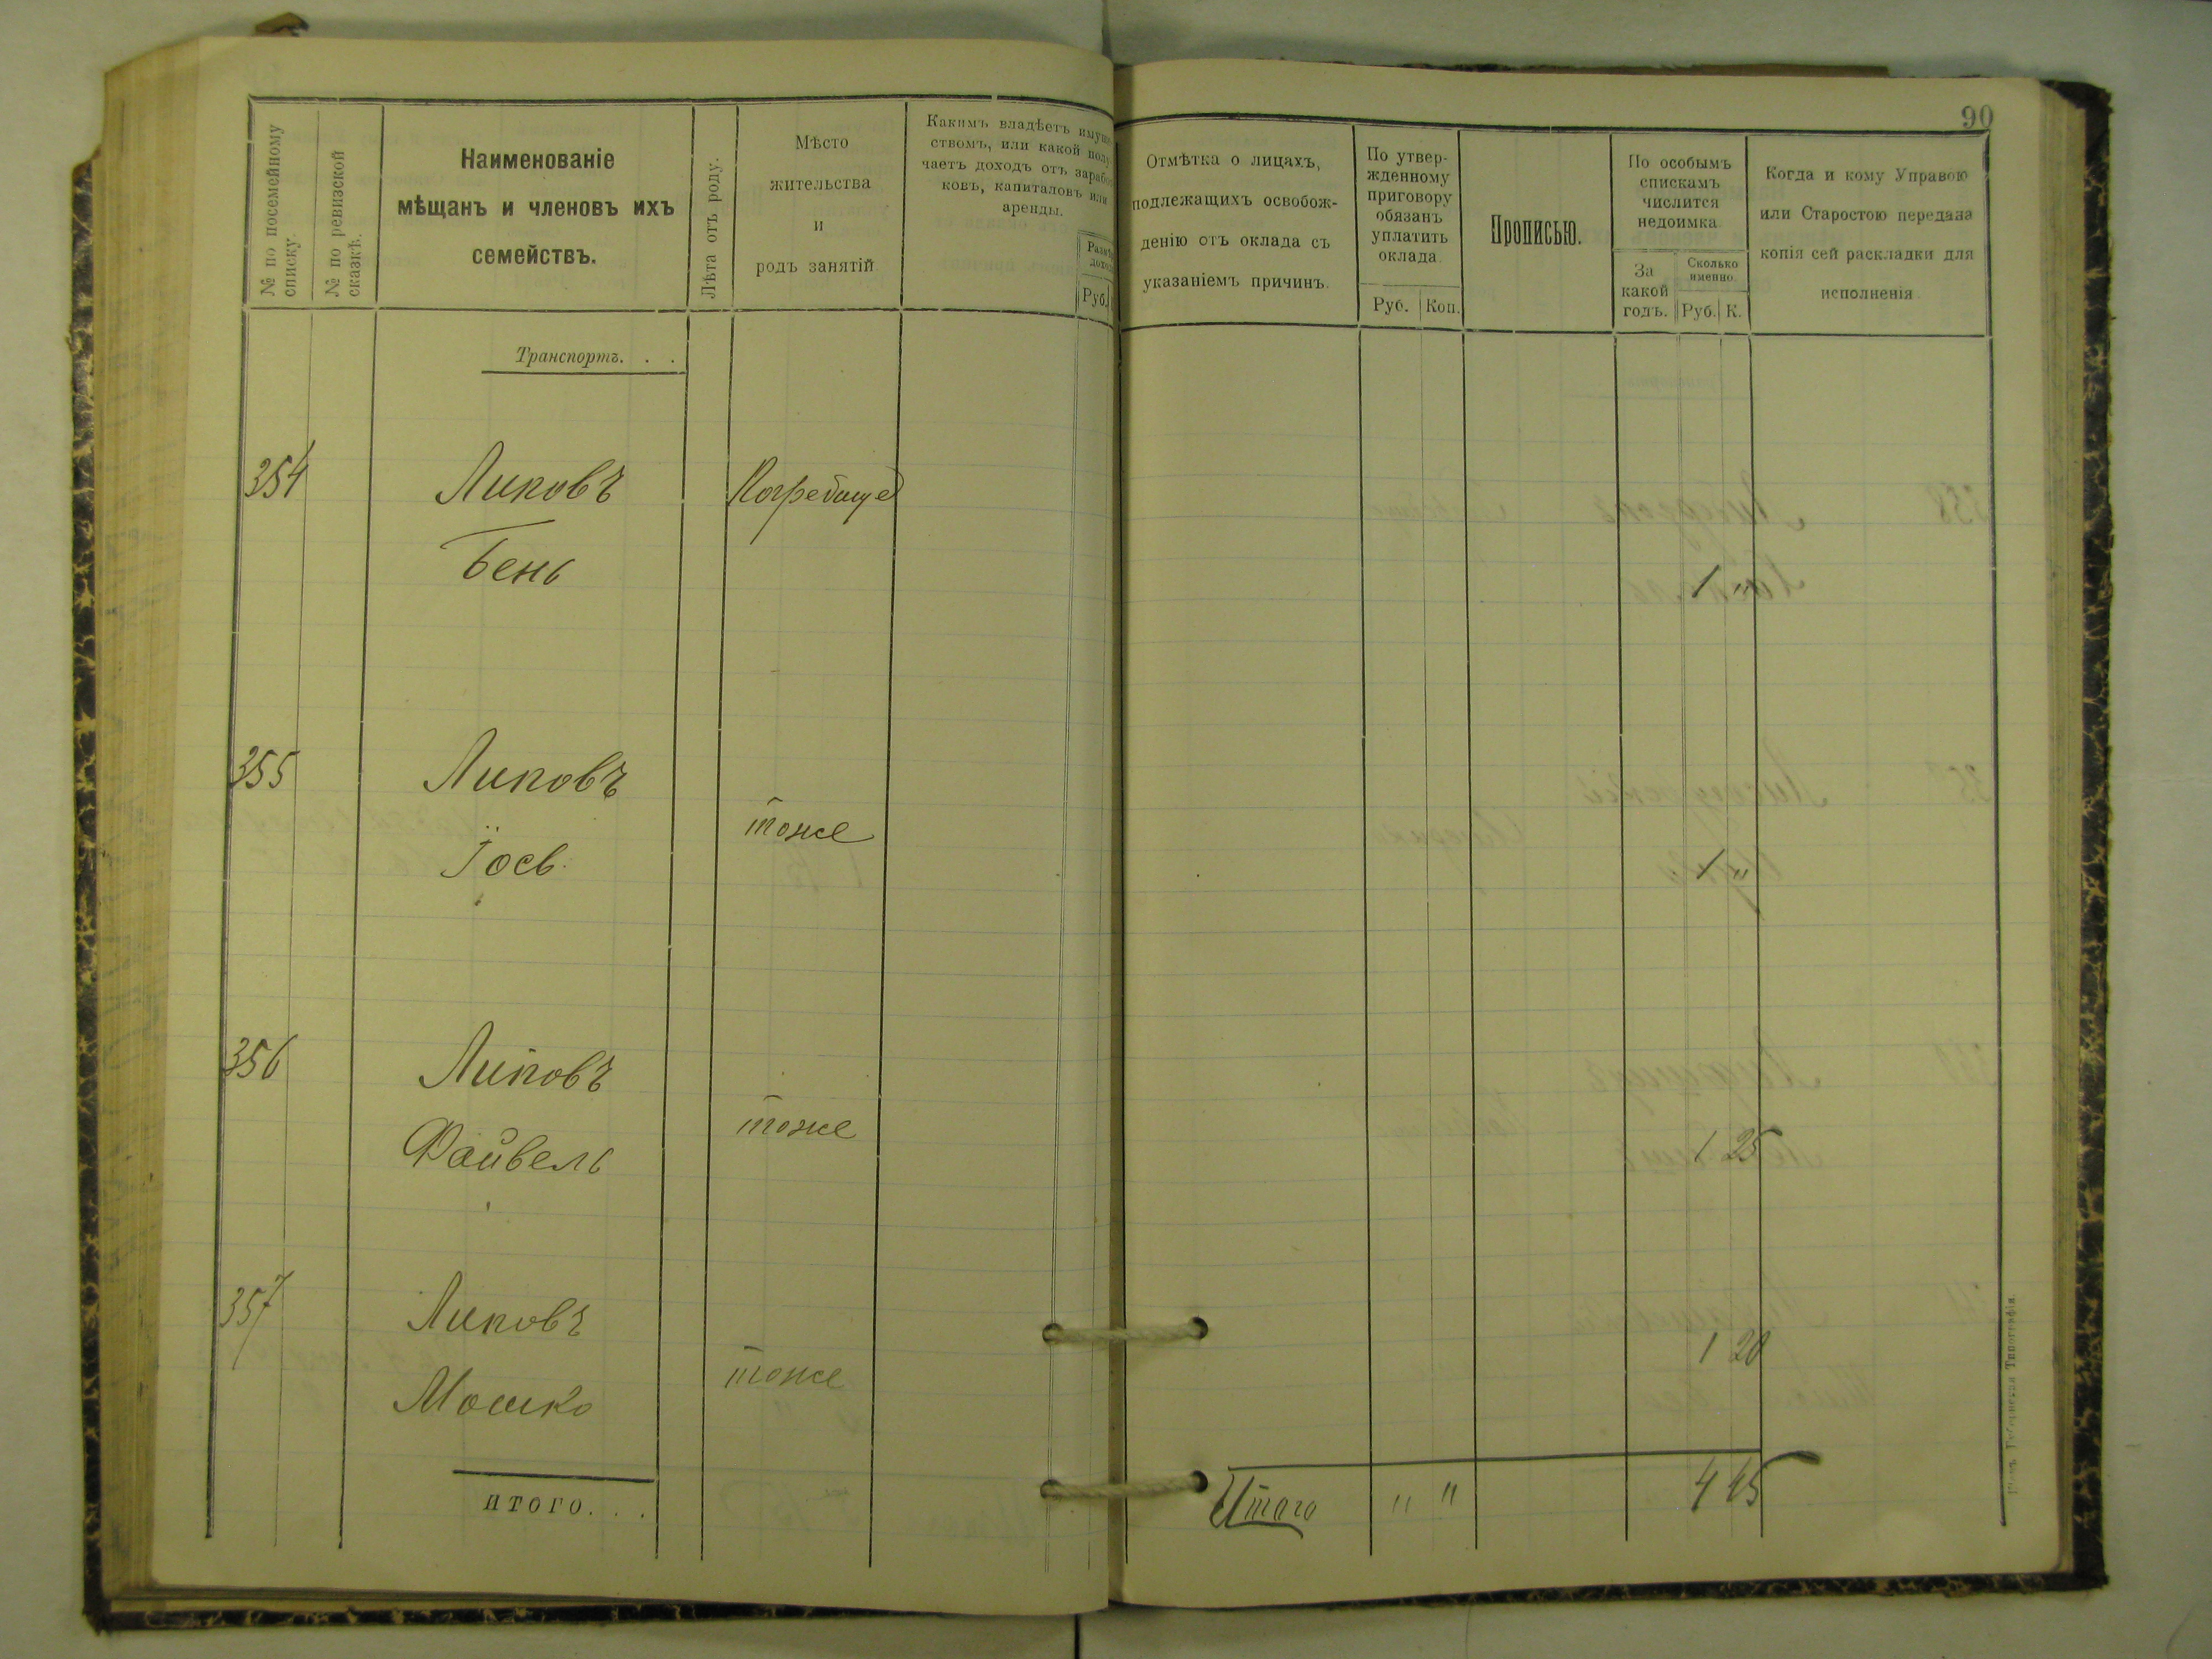 90
№ по посемейному
списку.
№ по ревизской
сказкѣ.
Наименованіе
мѣщанъ и членовъ ихъ
семействъ.
Лѣта отъ роду.
Мѣсто
жительства
и
родъ занятій
Какимъ владѣетъ имуще
ствомъ, или какой полу
чаетъ доходъ отъ зарабо
ковъ, капиталовъ или
аренды.
Руб.
Отмѣтка о лицахъ,
подлежащихъ освобож-
денію отъ оклада съ
указаніемъ причинъ.
По утвер-
жденному
приговору
обязанъ
уплатить
оклада.
Руб. Коп.
Прописью.
По особымъ
спискамъ
числится
недоимка.
За
какой
годъ.
Сколько
именно.
Руб. К.
Когда и кому Управою
или Старостою передана
копія сей раскладки для
исполненія.
Транспортъ. . .
354 Липовъ Погребище
Бень 1 "
355 Липовъ
тоже
Іось 1 "
356 Липовъ
тоже
Файвель 1 25
357 Липовъ
1 20
тоже
Мошко
итого. . .
Итого " " 4 45
Губернская Типографія.